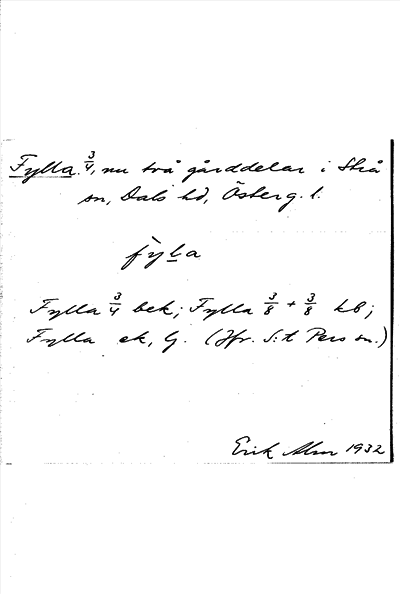 Fylla 3/4, nu två gårddelar i Strå
sn, Dals hd, Österg. l.
fyla
Fylla 3/4 bek; Fylla 3/8 + 3/8 kb;
Fylla ek, G. (Jfr. S:t Pers sn.)
Erik Alm 1932